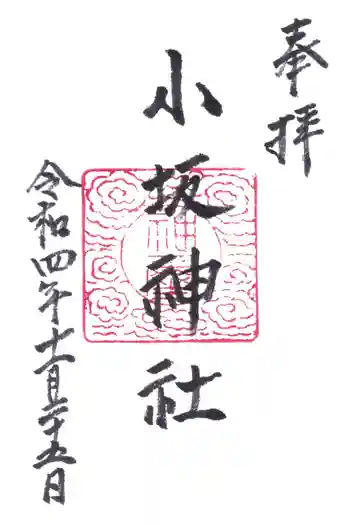 奉拝
小坂神社
令和四年十一月二十五日